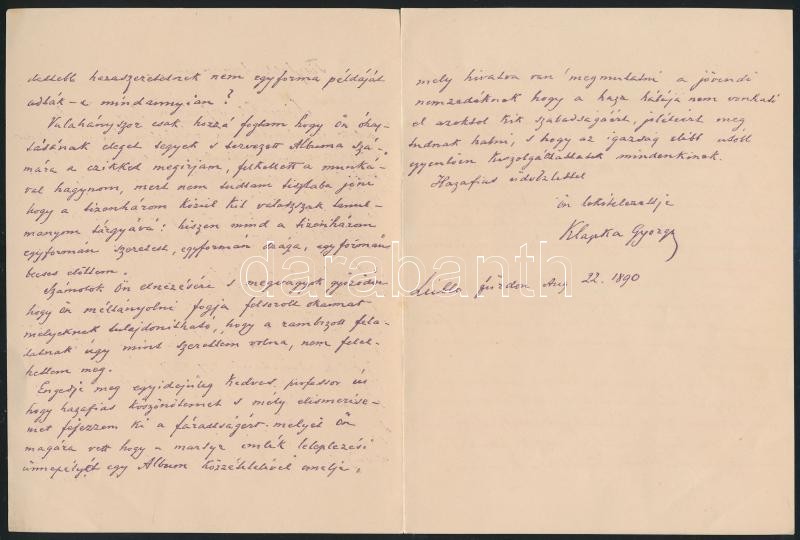 hazaszeretetnek nem egyforma példáját
adták-e mindannyian?
Valahányszor csak hozzá fogtam hogy Ön óhaj-
tásának eleget tegyek s tervezett Albuma szá-
mára a czikket megirjam, félkellett a munká-
val hagynom, mert nem tudtam tisztába jöni
hogy a tizenhárom közül kit válaszszak tanul-
mányom tárgyává: hiszen mind a tizenhárom
egyformán szeretett, egyformán drága, egyformán
becses előttem.
Számolok Ön elnézésére s megvagyok győződve
hogy Ön méltányolni fogja felsorolt okaimat
melyeknek tulajdonitható, hogy a rambizott fela-
datnak úgy mint szerettem volna, nem felel-
hettem meg.
Engedje meg egyidejüleg kedves professor úr
hogy hazafias köszönetemet s mély elismerése-
met fejezzem ki a fáradtságért melyet Ön
magára vett hogy a martyr emlék leleplezési
ünnepélyét egy Album közzétételével emelje,
mely hivatva van megmutatni a jövendő
nemzedéknek hogy a haza hálája nem vonható
el azoktól kik szabadságáért, jólétéért meg
tudnak halni, s hogy az igazság előbb utóbb
egyenlően kiszolgáltattatik mindenkinek.
Hazafias üdvözlettel
Ön lekötelezettje
Klapka György
füreden Aug 22. 1890
darabanth